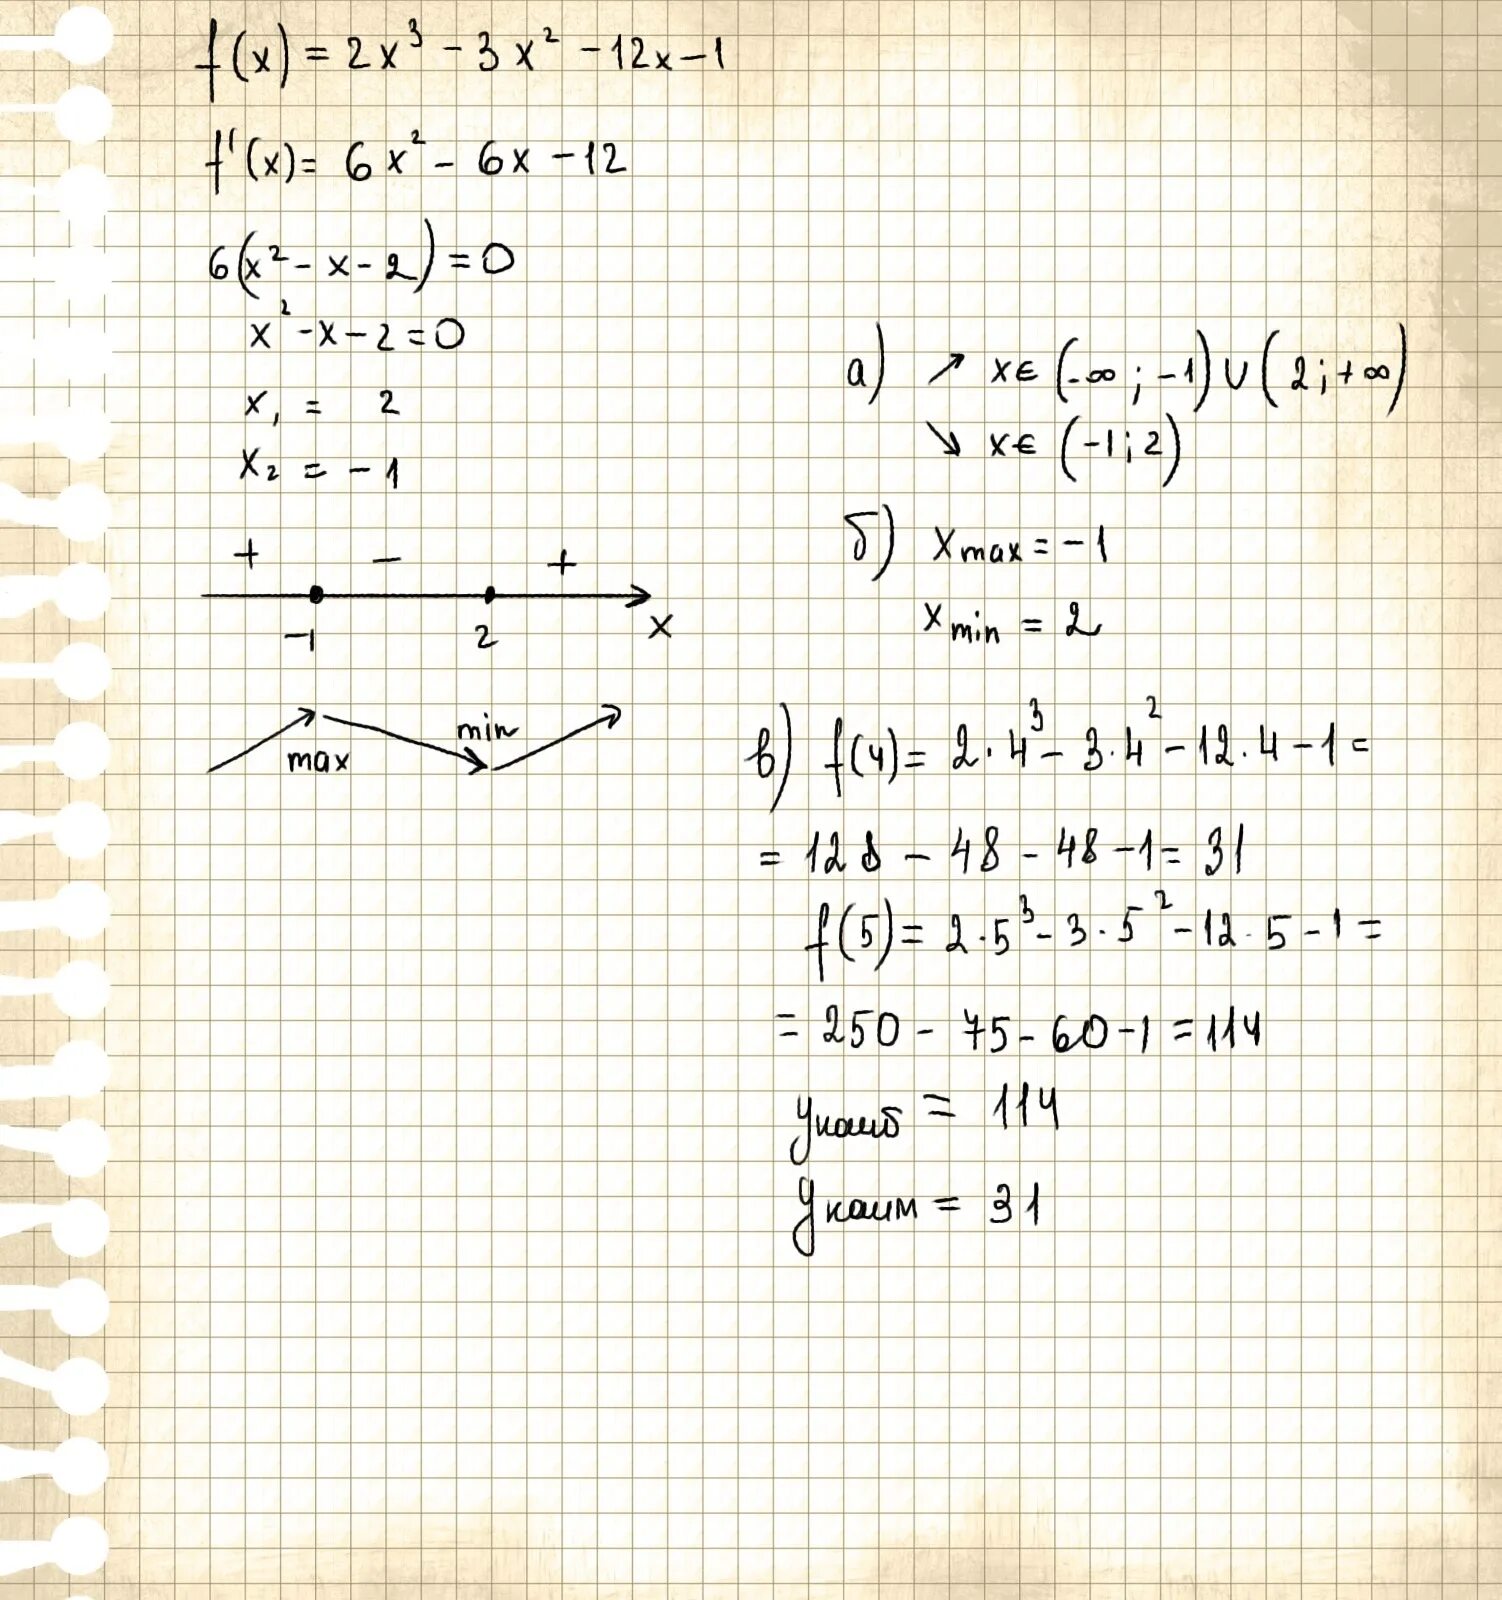 f(x) = 2x³ - 3x² - 12x - 1
f'(x) = 6x² - 6x - 12
6(x² - x - 2) = 0
x² - x - 2 = 0
x₁ = 2
x₂ = -1
+ - +
-1 2 x
max min
а) ↗ x∈(-∞; -1)∪(2; +∞)
↘ x∈(-1; 2)
б) xmax = -1
xmin = 2
в) f(4) = 2·4³ - 3·4² - 12·4 - 1 =
= 128 - 48 - 48 - 1 = 31
f(5) = 2·5³ - 3·5² - 12·5 - 1 =
= 250 - 75 - 60 - 1 = 114
yнаиб = 114
yнаим = 31